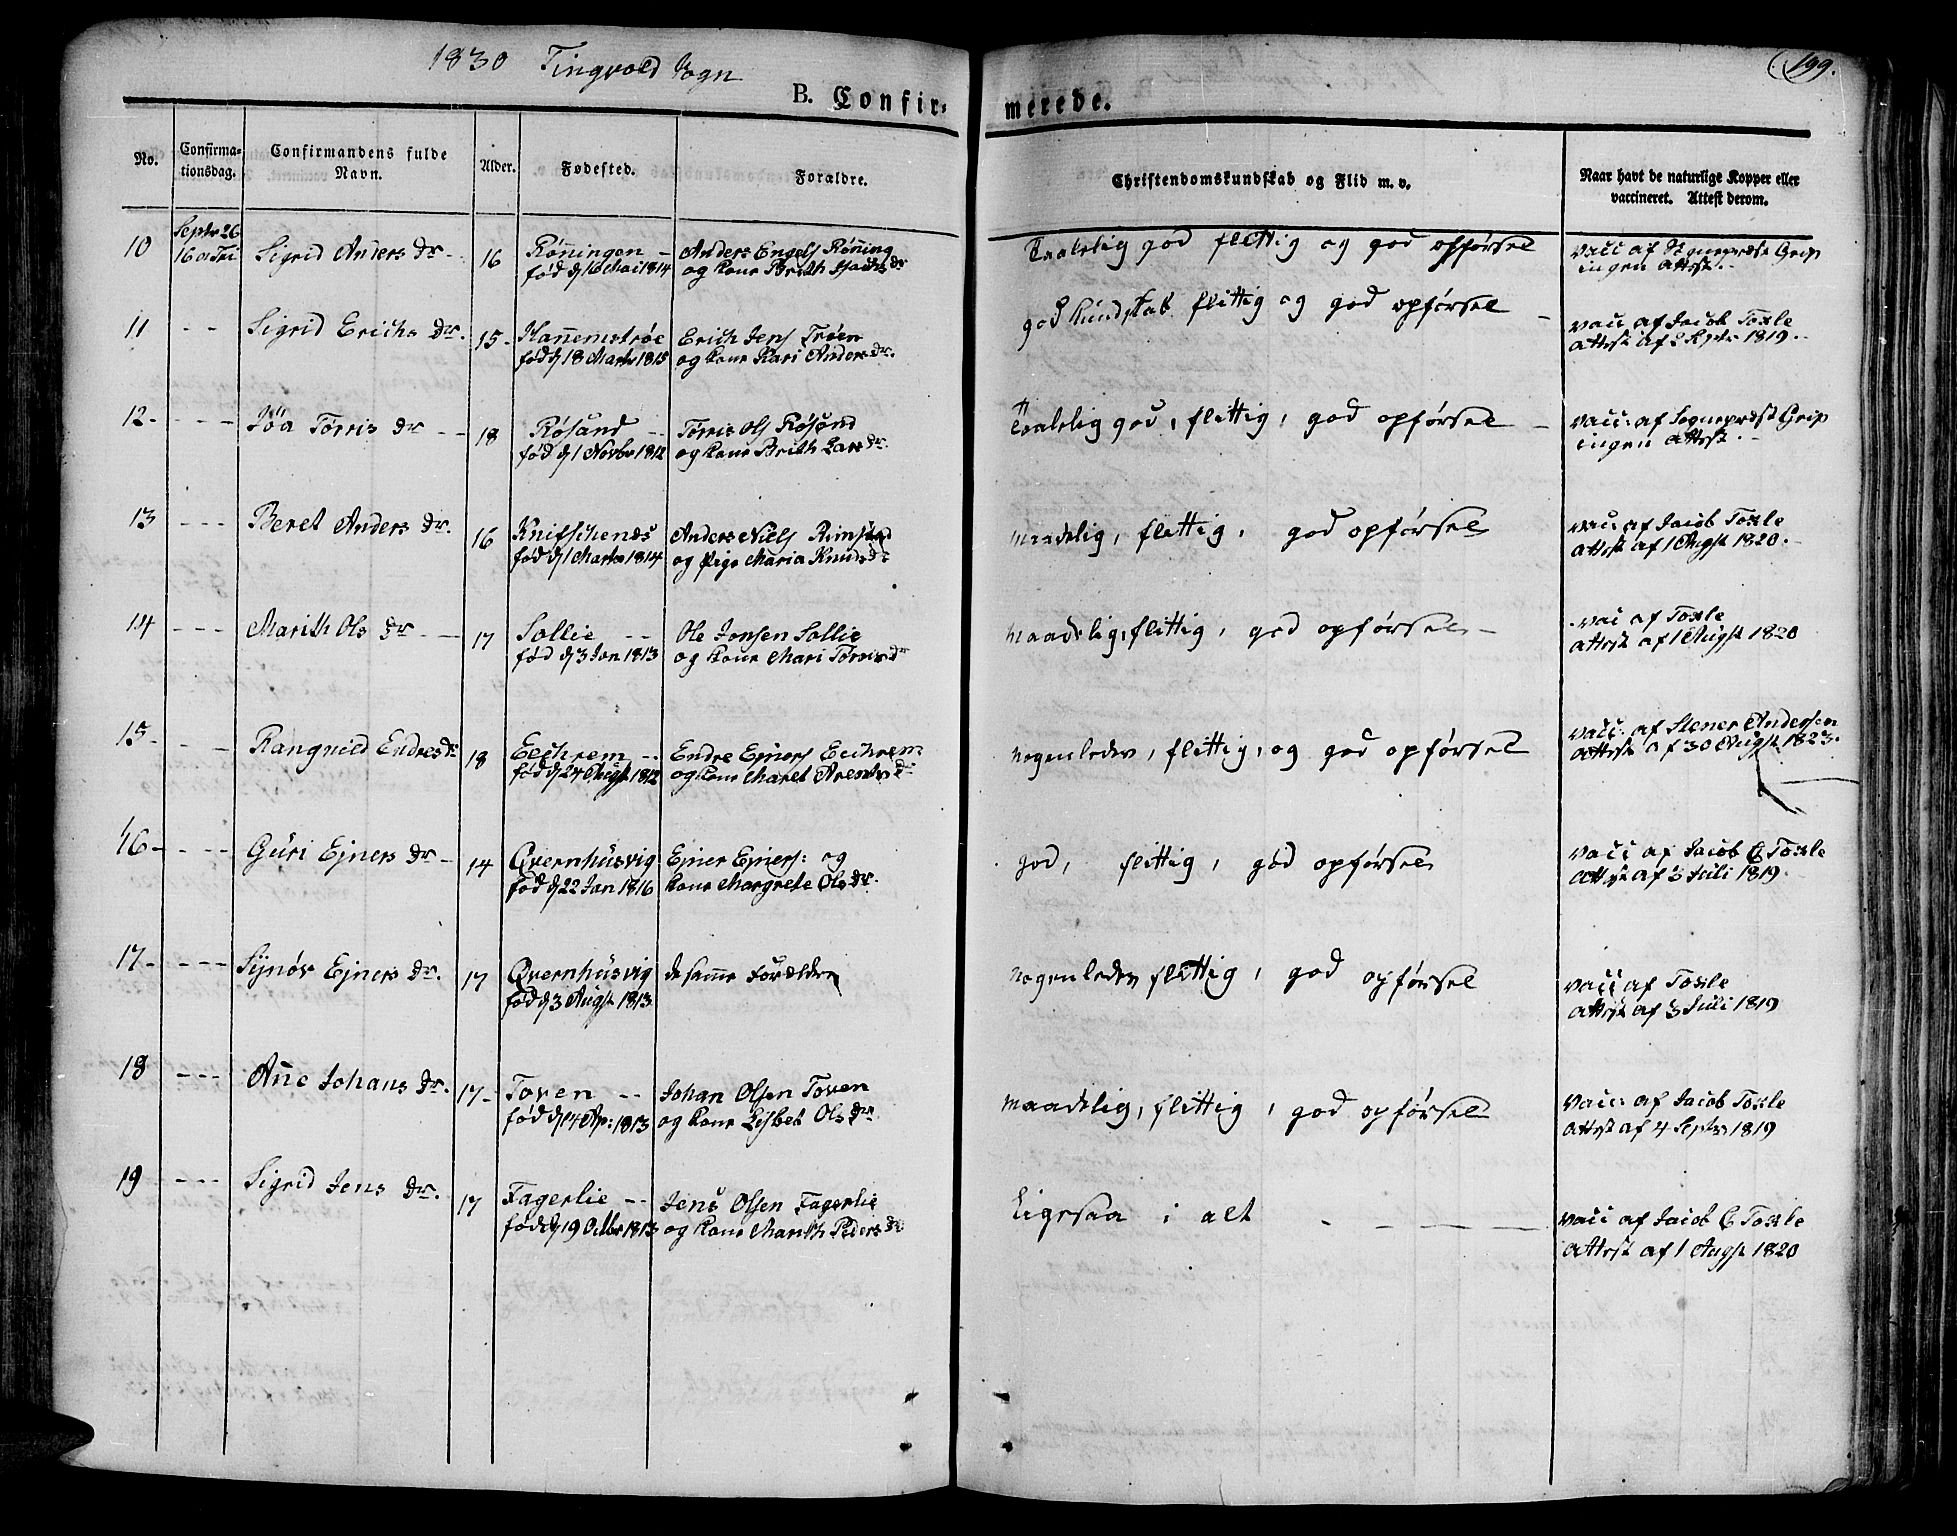 1830 Tingvold Sogn
199.
B. Confir-
merede.
No.
Confirma-
tionsdag.
Confirmandens fulde
Navn.
Alder.
Fødested.
Forældre.
Christendomskundskab og Flid m. v.
Naar havt de naturlige Kopper eller
vaccineret. Attest derom.
10
Septr 26
16 a Tri
Sigrid Anders Dr.
16
Rönningen -
fød d 16 Mai 1814
Anders Engels Rönning
og Kone Brith Dr
Taalelig god flittig og god opførsel
vacc af Sognepræst Grip
ingen Attest.
11
Sigrid Erichs Dr.
15 -
Hannemstrøe
fød d 18 Marts 1815
Erich Jens Trøen
og Kone Kari Anders dr.
god Kundskab flittig og god opførsel -
vacc af Jacob Toxle
Attest af 2 Septr 1819.
12 - - - -
Torris Dr - -
18
Røsand - -
fød d 1 Novbr 1812
Torris Ols Røsand
og Kone Brith Lars dr.
Taalelig god, flittig, god opførsel -
vacc: af Sognepræst Grip
ingen Attest. -
13 - - -
Beret Anders Dr.
16
Knifschenes
fød d 1 Marts 1814
Anders Niels
og Pige Maria Knuds dr
maadelig, flittig, god opførsel
vacc af Jacob Toxle
Attest af 1 Augst 1820. -
14 - - -
Marith Ols Dr - -
17
Sollie - -
fød d 3 Jan 1813
Ole Jonsen Sollie
og Kone Mari Torris dr
maadelig, flittig, god opførsel -
vacc af Toxle
Attest af 1 Augst 1820
15 - - -
Rangnild Endres dr
18
Eechrem - -
fød d 24 Augst 1812
Endre Ejners Eechrem
og Kone Maret Arents dr
nogenleder, flittig, og god opførsel
vacc: af Stener Andersen
Attest af 30 Augst 1823.
16 - - - -
Guri Ejners Dr -
14
Qvernhusvig
fød d 22 Jan 1816
Ejner Ejners: og
Kone Margrete Ols dr.
god, flittig, god opførsel
vacc af Jacob C Toxle
Attest af 3 Juli 1819.
17 - - - - -
Synøv Ejners Dr.
17
Qvernhusvig
fød d 3 Augst 1813
de samme Forældre
nogenleder flittig, god opførsel
vacc af Toxle
Attest af 3 Juli 1819
18 - - -
Anne Johans Dr.
17 -
Toven - -
fød d 14 Ap: 1813
Johan Olsen Toven
og Kone Lisbet Ols dr
maadelig, flittig, god opførsel
vacc: af Jacob Toxle
Attest af 4 Septr 1819
19 - - -
Sigrid Jens Dr.
17
Fagerlie - -
fød d 19 Octbr 1813
Jens Olsen Fagerlie
og Kone Marith Peders dr
Ligesaa i alt - - - - -
vacc af Jacob C Toxle
Attest af 1 Augst 1820